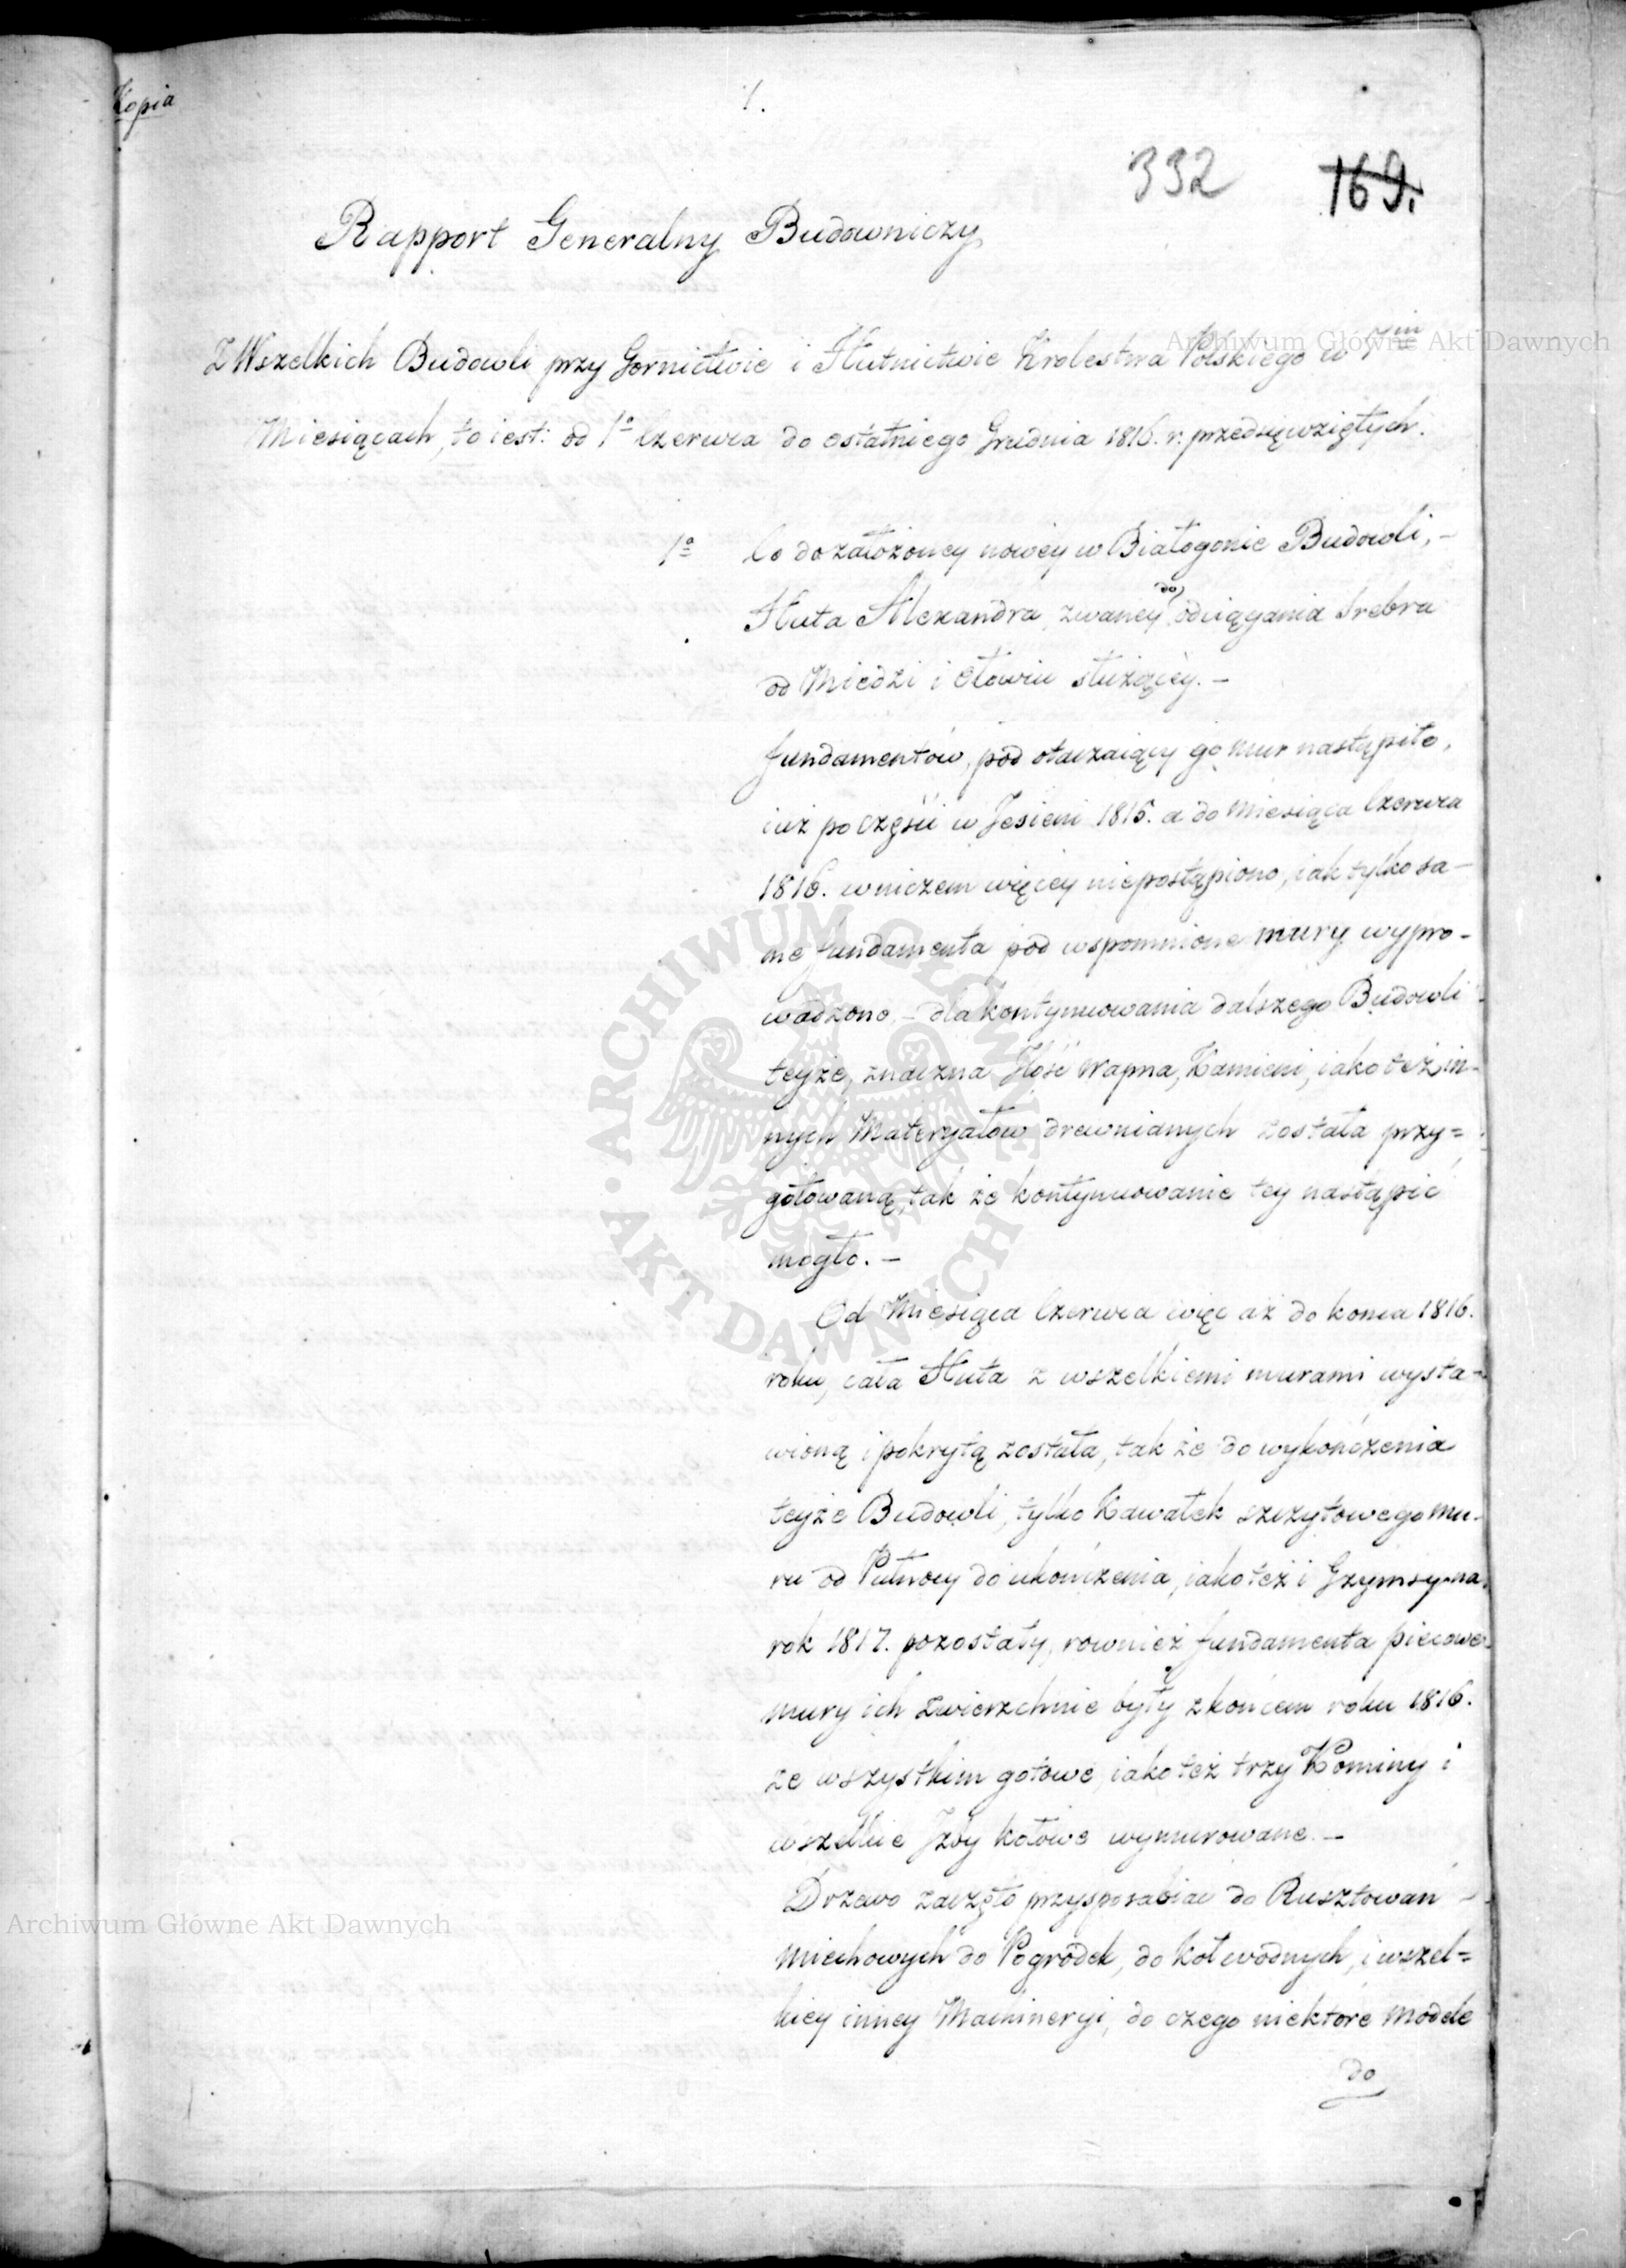 Kopia
1.
332 169.
Rapport Generalny Budowniczy
Z Wszelkich Budowli przy Gornictwie i Hutnictwie Krolestwa Polskiego w 7miu
Miesiącach, to iest: od 1o Czerwca do ostatniego Grudnia 1816. r. przedsięwziętych.
1o Co do założoney nowéy w Białogonie Budowli, –
Huta Alexandra zwaney do odciągania Srebra
od Miedzi i Ołowiu służącéy. –
fundamentów, pod otaczaiący go mur nastąpiło,
iuż po części w Jesieni 1815. a do Miesiąca Czerwca
1816. w niczem więcey niepostąpiono, iak tylko sa-
me fundamenta pod wspomnione mury wypro-
wadzono – dla kontynuowania dalszego Budowli
teyże, znaczna Ilość Wapna, Kamieni, iako też in-
nych Materyałów drewnianych została przy=
gotowaną, tak że kontynuowanie tey nastąpić
mogło. –
Od Miesiąca Czerwca więc aż do konca 1816.
roku, cała Huta z wszelkiemi murami wysta-
wioną i pokrytą została, tak że do wykończenia
teyże Budowli, tylko Kawałek szczytowego mu-
ru od Pułnocy do ukończenia, iako też i Gzymsy na
rok 1817. pozostały, rownież fundamenta piecowe
mury ich zwierzchnie były z końcem roku 1816.
ze wszystkim gotowe, iako też trzy Kominy i
wszelkie Izby kołowe wymurowane. –
Drzewo zaczęto przysposabiać do Rusztowań –
miechowych do Pogrodek, do kół wodnych, i wszel=
kiey inney Machineryi, do czego niektóre Modele
do
Archiwum Główne Akt Dawnych
Archiwum Główne Akt Dawnych
ARCHIWUM GŁÓWNE · AKT DAWNYCH ·